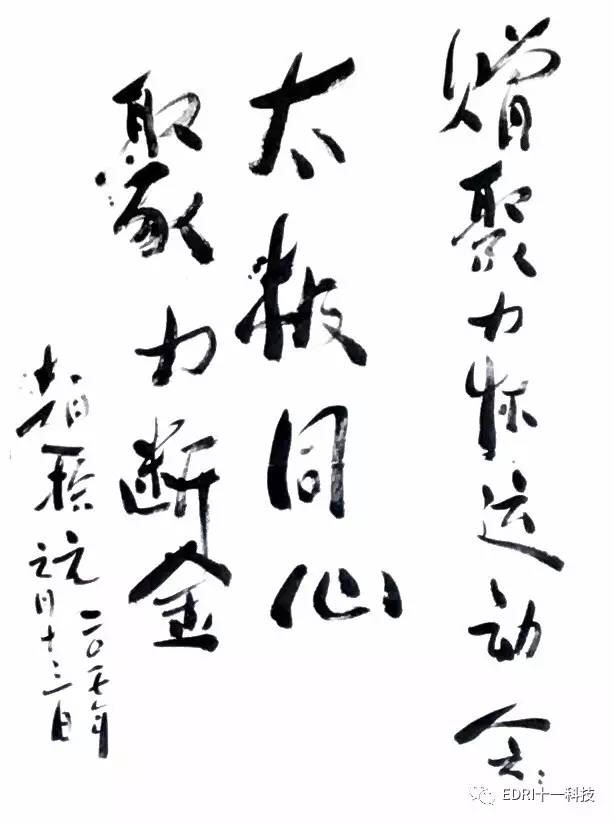 赠聚力杯运动会:
太极同心
聚力断金
赵振元
二〇一七年
月十三日
EDRI十一科技